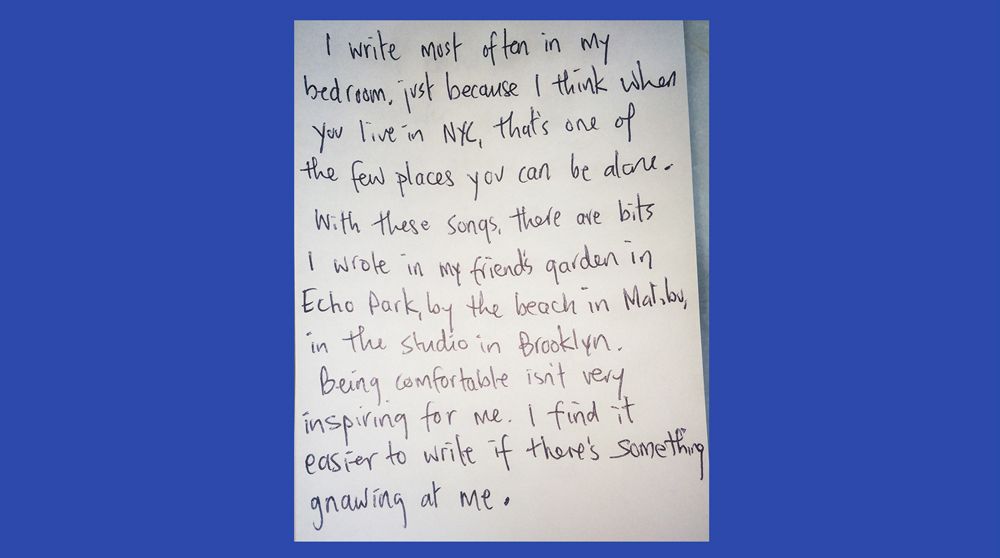 I write most often in my
bedroom, just because I think when
you live in NYC, that's one of
the few places you can be alone.
With these songs, there are bits
I wrote in my friend's garden in
Echo Park, by the beach in Malibu,
in the studio in Brooklyn.
Being comfortable isn't very
inspiring for me. I find it
easier to write if there's something
gnawing at me.